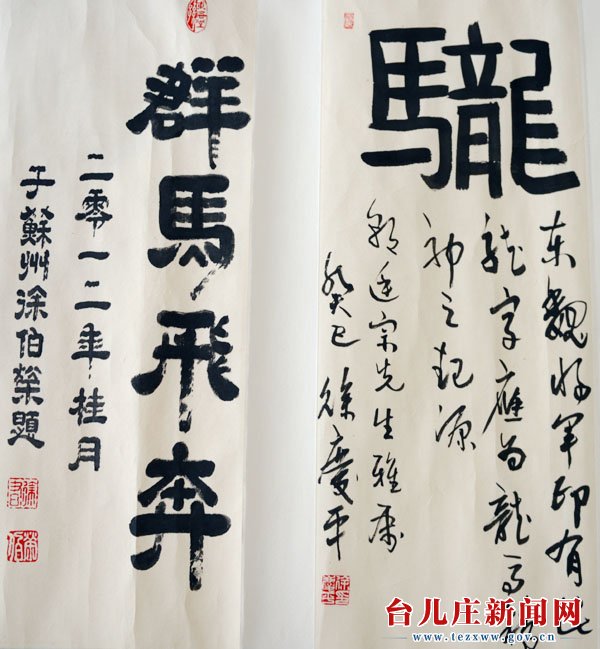 群馬飛奔
二零一二年桂月
于蘇州徐伯榮題
䮾
东魏将军印有此
字應为龍马精
神之起源
宗先生雅属
癸巳 徐慶平
台儿庄新闻网
www.tezxww.gov.cn